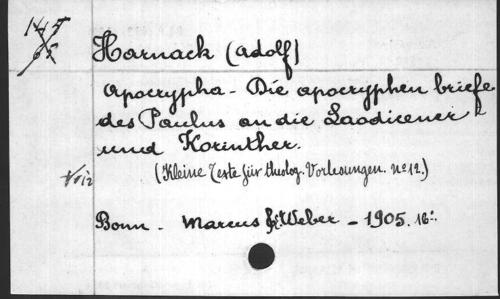 Harnack (Adolf)
Apocrypha - Die apocryphen briefe
des Paulus an die Laodicener
und Korinther.
(Kleine Texte für theolog. Vorlesungen. No 12.)
Bonn - Marcus & Weber - 1905. 16°.